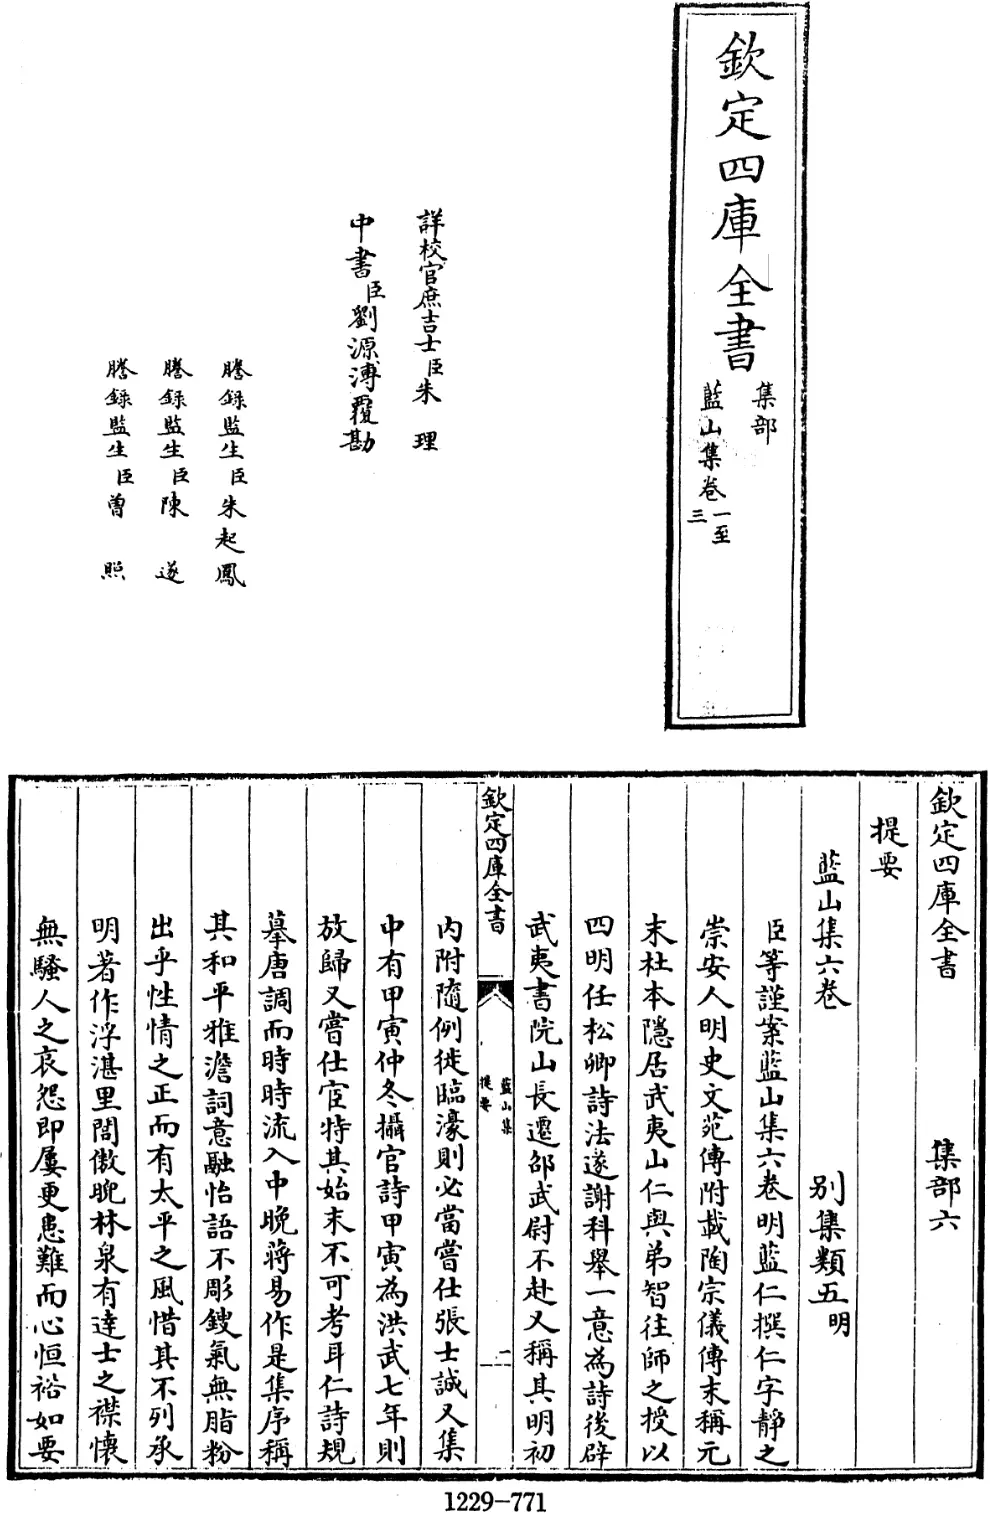 欽定四庫全書
集部
藍山集卷一至三
詳校官庶吉士臣朱理
中書臣劉源溥覆勘
謄錄監生臣朱起鳳
謄錄監生臣陳遂
謄錄監生臣曾照
欽定四庫全書　集部六
提要
藍山集六卷　別集類五明
臣等謹案藍山集六卷明藍仁撰仁字靜之
崇安人明史文苑傳附載陶宗儀傳末稱元
末杜本隱居武夷山仁與弟智往師之授以
四明任松卿詩法遂謝科舉一意為詩後辟
武夷書院山長遷邵武尉不赴又稱其明初
欽定四庫全書
藍山集
提要
一
內附隨例徙臨濠則必當嘗仕張士誠又集
中有甲寅仲冬攝官詩甲寅為洪武七年則
放歸又嘗仕宦特其始末不可考耳仁詩規
摹唐調而時時流入中晚蔣易作是集序稱
其和平雅澹詞意融怡語不彫鎪氣無脂粉
出乎性情之正而有太平之風惜其不列承
明著作浮湛里閭傲睨林泉有達士之襟懷
無騷人之哀怨即屢更患難而心恒裕如要
1229—771